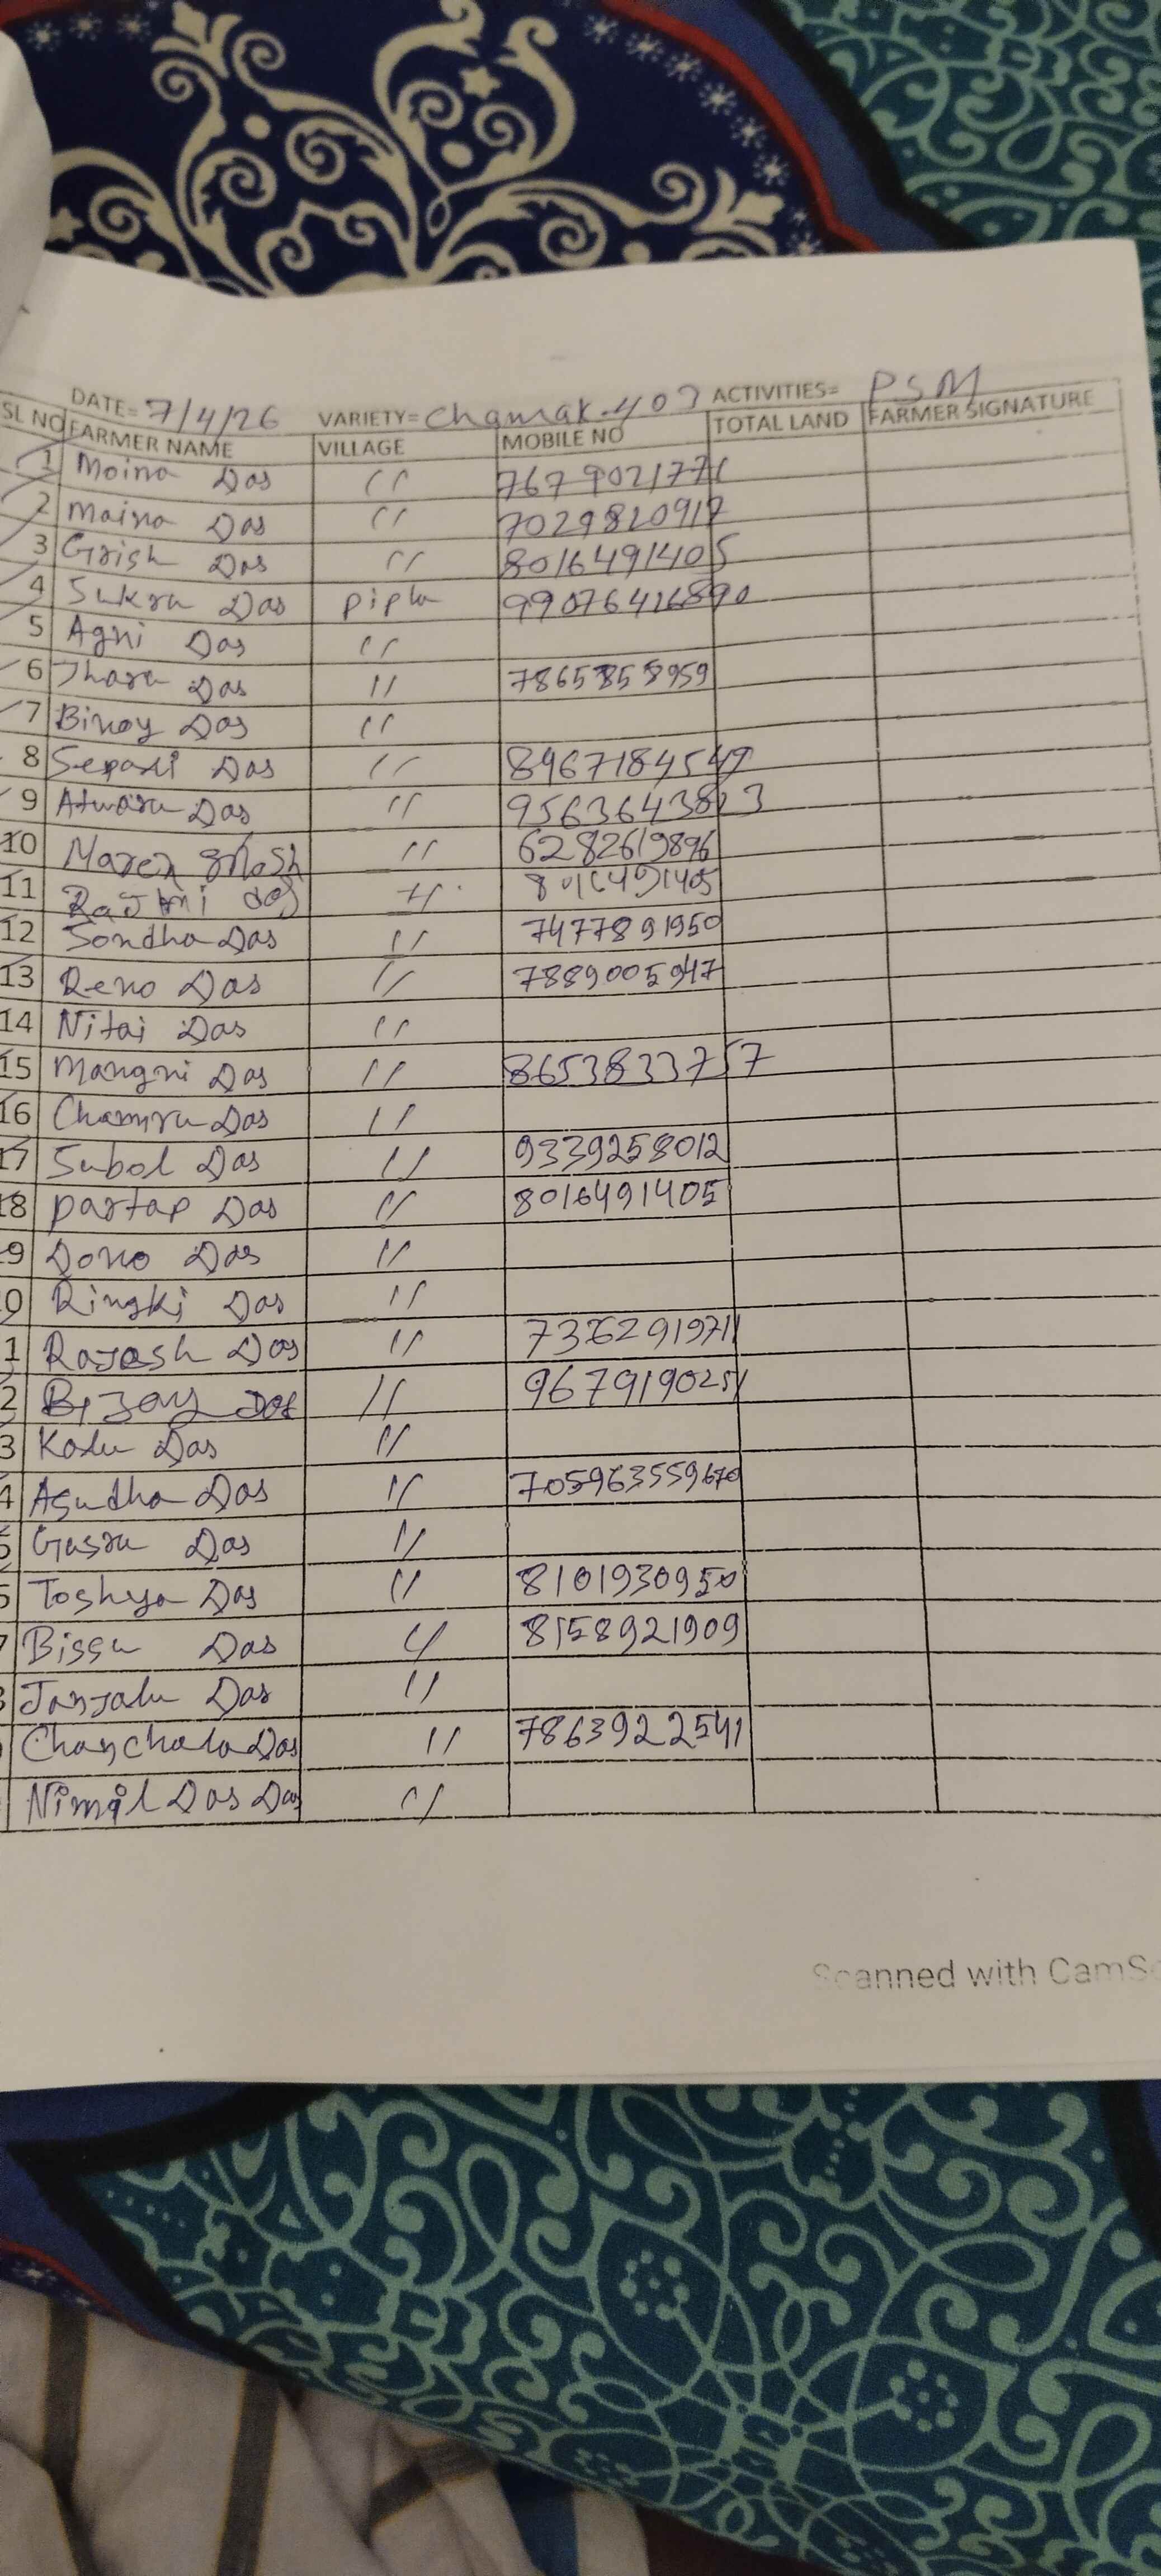 DATE= 7/4/26 VARIETY= Chamak-407 ACTIVITIES= PSM
SL NO FARMER NAME VILLAGE MOBILE NO TOTAL LAND FARMER SIGNATURE
1 Moina Das " 7679021771
2 Maina Das " 7029820917
3 Grish Das " 8016491405
4 Sukra Das Pipla
5 Agni Das "
6 Jhara Das " 7865858959
7 Binoy Das "
8 Sepali Das "
9 Atwaru Das " 9563643823
10 Naren Ghosh " 6282619896
11 Das " 8016491405
12 Sondha Das " 7477891950
13 Reno Das " 7889005947
14 Nitai Das "
15 Mangni Das " 8653833757
16 Chamru Das "
17 Subol Das " 9339258012
18 Partap Das " 8016491405
9 Dono Das "
0 Ringki Das "
1 Rajesh Das "
2 Bijoy Das " 9679190251
3 Kalu Das "
4 Asudha Das "
5 Gasru Das "
6 Toshya Das " 8101930950
7 Bissu Das " 8158921909
8 Janjalu Das "
Chanchala Das " 7863922541
Nimail Das Das "
Scanned with CamSc